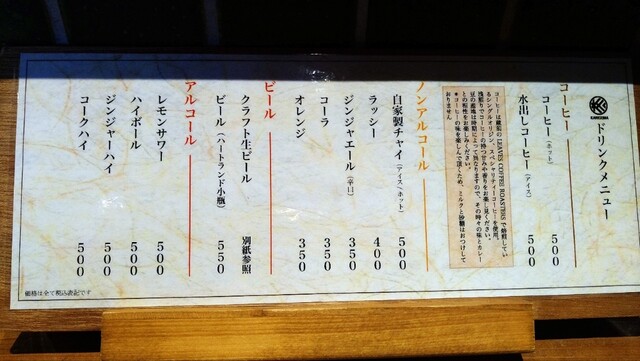 ドリンクメニュー
コーヒー
コーヒー（ホット） 500
水出しコーヒー（アイス） 500
コーヒーは蔵前の LEAVES COFFEE ROASTERS で焙煎してい
るシングルオリジン、スペシャリティーコーヒーを使用。
浅煎りでコーヒーの持つ甘みや香りをお楽しみください。
豆の産地は時期によって異なりますので、その時々の味とカレー
との相性をお楽しみください。
★コーヒーの味を楽しんで頂くため、ミルクと砂糖はおつけして
おりません
ノンアルコール
自家製チャイ（アイス/ホット） 500
ラッシー 400
ジンジャエール（辛口） 350
コーラ 350
オレンジ 350
ビール
クラフト生ビール 別紙参照
ビール（ハートランド小瓶） 550
アルコール
レモンサワー 500
ハイボール 500
ジンジャーハイ 500
コークハイ 500
価格は全て税込表記です